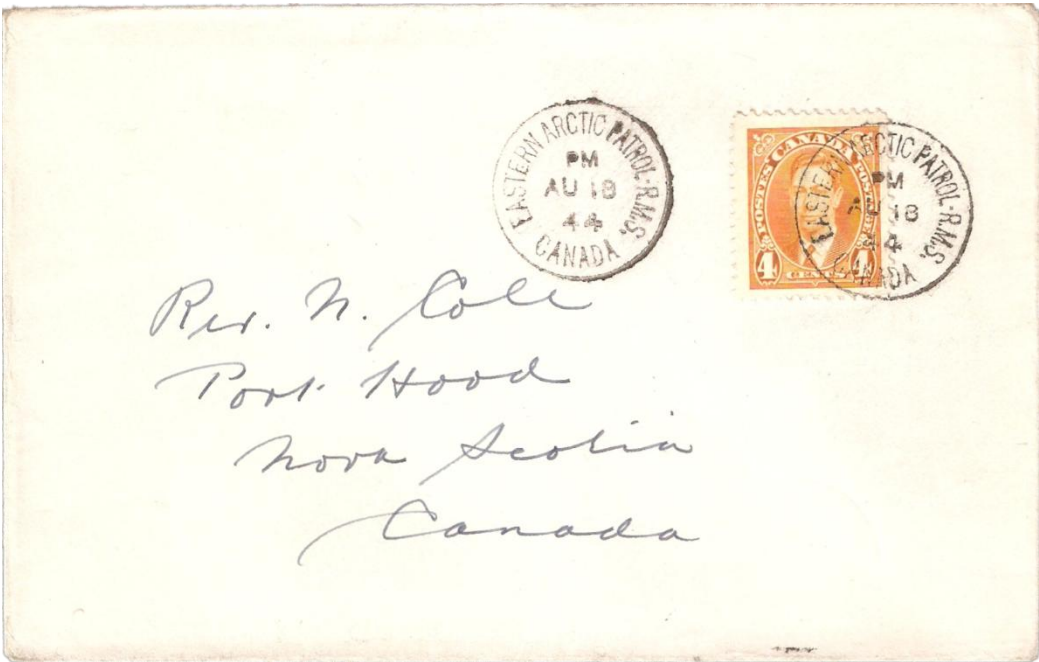 EASTERN ARCTIC PATROL-R.M.S.
PM
AU 18
44
CANADA
POSTES CANADA POSTAGE
4 CENTS 4
EASTERN ARCTIC PATROL-R.M.S.
PM
AU 18
44
CANADA
Rev. N. Cole
Port Hood
Nova Scotia
Canada